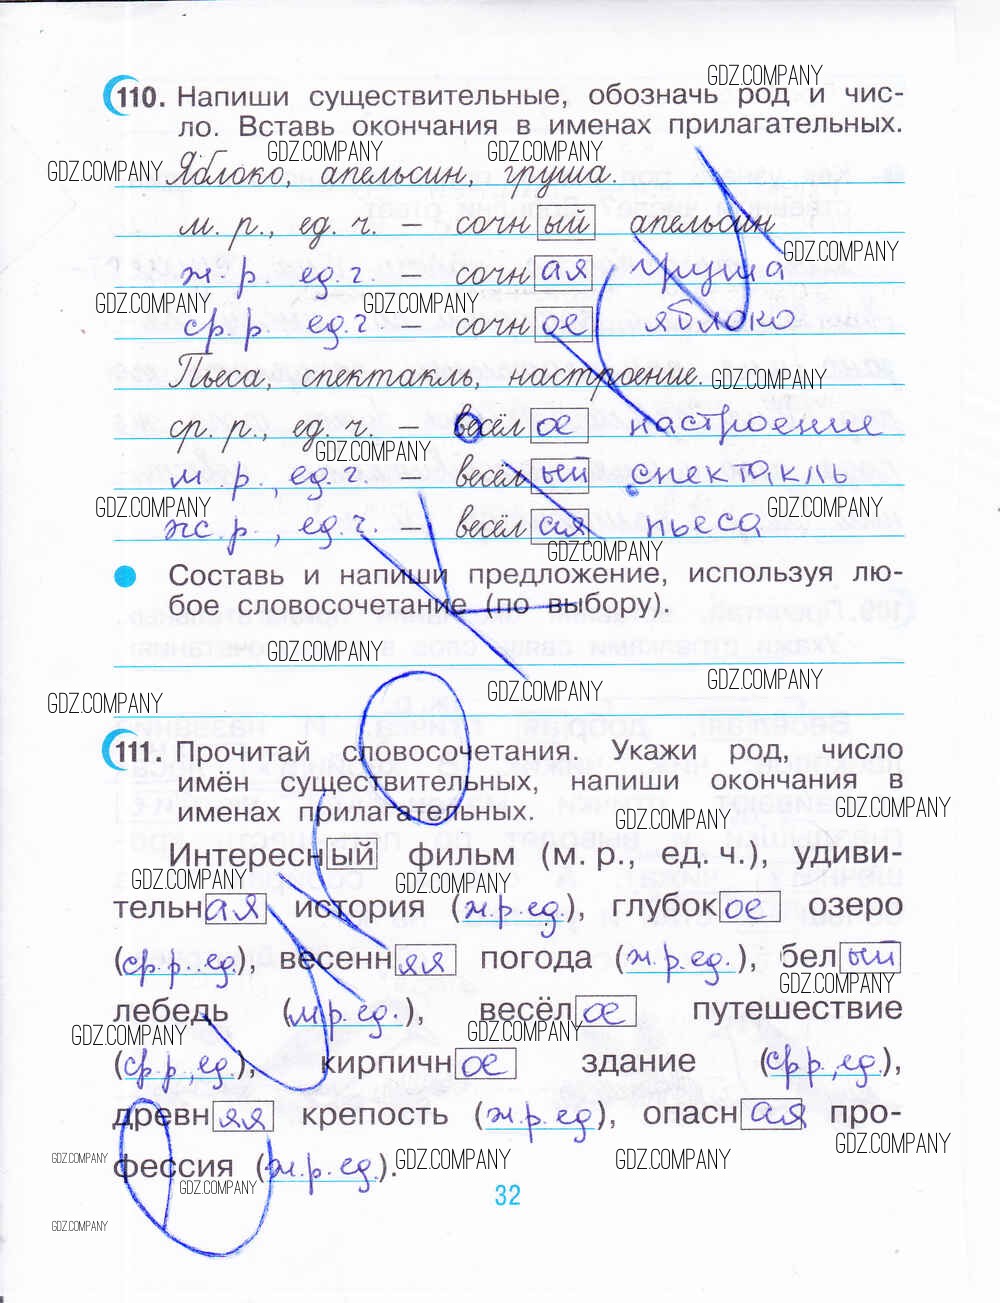 GDZ.COMPANY
110. Напиши существительные, обозначь род и чис-
ло. Вставь окончания в именах прилагательных.
GDZ.COMPANY GDZ.COMPANY GDZ.COMPANY
Яблоко, апельсин, груша.
м. р., ед. ч. – сочный апельсин
GDZ.COMPANY
ж. р. ед. ч. – сочная груша
GDZ.COMPANY GDZ.COMPANY
ср. р. ед. ч – сочное яблоко
Пьеса, спектакль, настроение.
GDZ.COMPANY
ср. р., ед. ч. – весёлое настроение
GDZ.COMPANY
м. р., ед. ч. – весёлый спектакль
GDZ.COMPANY GDZ.COMPANY
ж. р., ед. ч. – весёлая пьеса
GDZ.COMPANY
Составь и напиши предложение, используя лю-
бое словосочетание (по выбору).
GDZ.COMPANY
GDZ.COMPANY GDZ.COMPANY GDZ.COMPANY
111. Прочитай словосочетания. Укажи род, число
имён существительных, напиши окончания в
именах прилагательных.
GDZ.COMPANY GDZ.COMPANY
Интересный фильм (м. р., ед. ч.), удиви-
GDZ.COMPANY GDZ.COMPANY
тельная история (ж.р.ед.), глубокое озеро
(ср.р..ед.), весенняя погода (ж.р.ед.), белый
GDZ.COMPANY
лебедь (м.р.ед.), весёлое путешествие
GDZ.COMPANY GDZ.COMPANY
(ср.р.,ед.), кирпичное здание (ср.р.,ед.),
древняя крепость (ж.р.ед), опасная про-
GDZ.COMPANY
фессия (ж.р.ед.).
GDZ.COMPANY GDZ.COMPANY GDZ.COMPANY
GDZ.COMPANY
32
GDZ.COMPANY